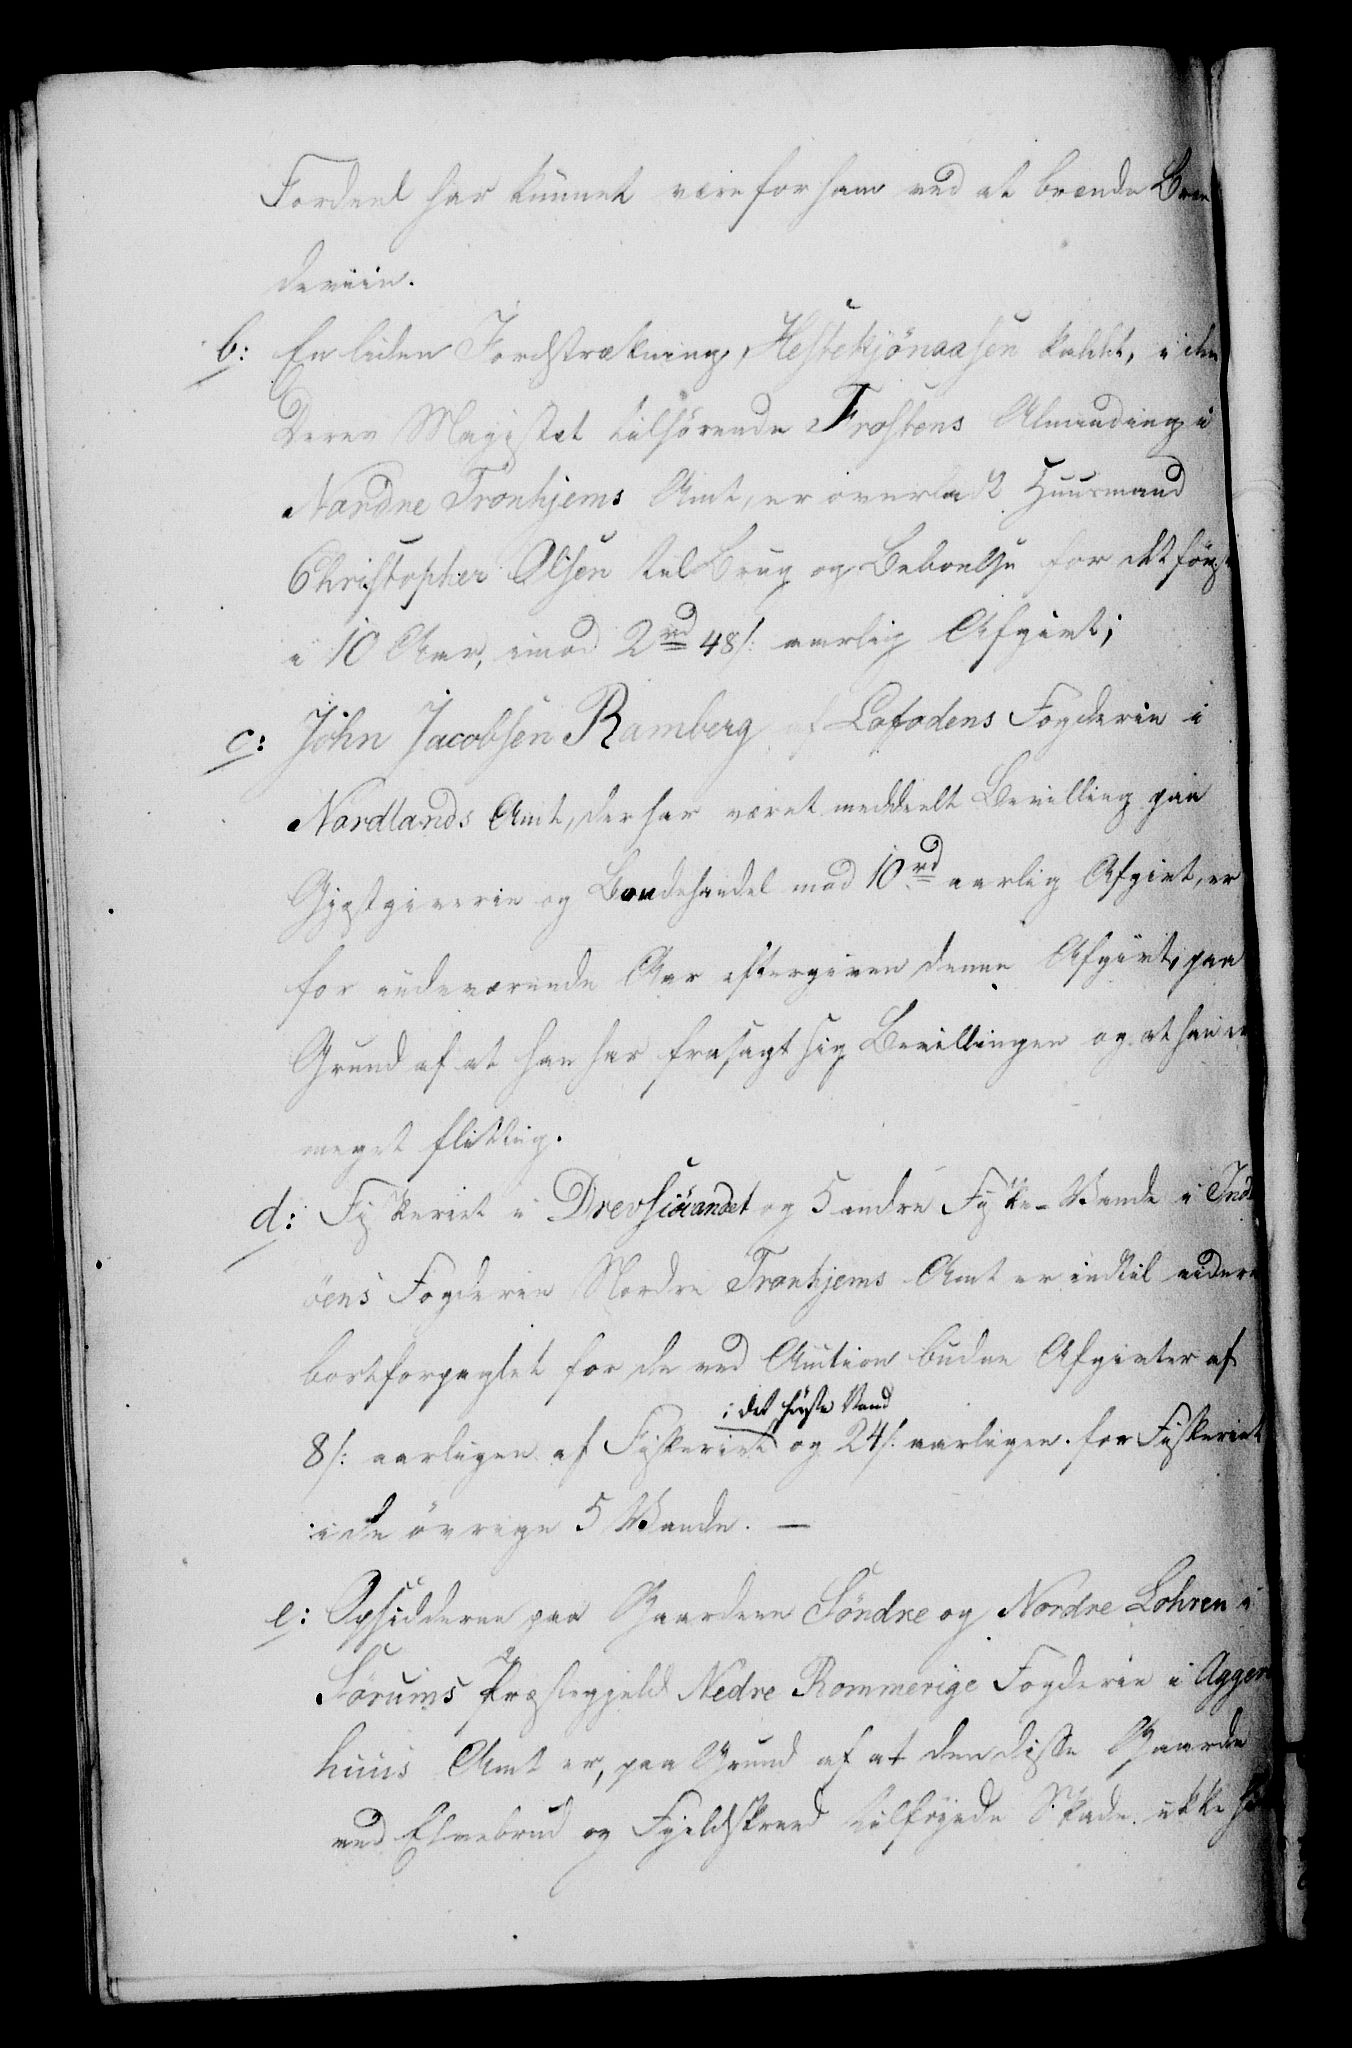 Fordeel har kunnet være for ham ved at brænde Bræn
deviin.
b: En liden Jordstrækning, Hestekjönaasen kaldt, i den
Deres Majestet tilhörende Frostens Alminding i
Nordre Tronhjems Amt, er overladt Huusmand
Christopher Olsen til Brug og Beboelse for det förste
i 10 Aar, imod 2 rd 48 s: aarlig Afgivt;
c: John Jacobsen Ramberg af Lofodens Fogderie i
Nordlands Amt, der har været meddeelt Bevilling paa
Gjestgiverie og Bondehandel mod 10 rd aarlig Afgivt, er
for indeværende Aar eftergiven denne Afgivt, paa
Grund af at han har frasagt sig Bevillingen og at han er
meget flittig.
d: Fiskeriet i Drevsiövandet og 5 andre Fiske-Vande i Ind
öens Fogderie Nordre Tronhjems Amt er indtil videre
bortforpagtet for de ved Auction budne Afgivter af
i det förste Vand
8 s: aarligen af Fiskeriet og 24 s: aarligen for Fiskeriet
i de övrige 5 Vande. —
e: Opsidderne paa Gaardene Söndre og Nordre Lohren i
Sörums Præstegjeld Nedre Rommerige Fogderie i Agger
huus Amt er, paa Grund af at den disse Gaarde
ved Elvebrud og Fjeldskred tilföjede Skade ikke